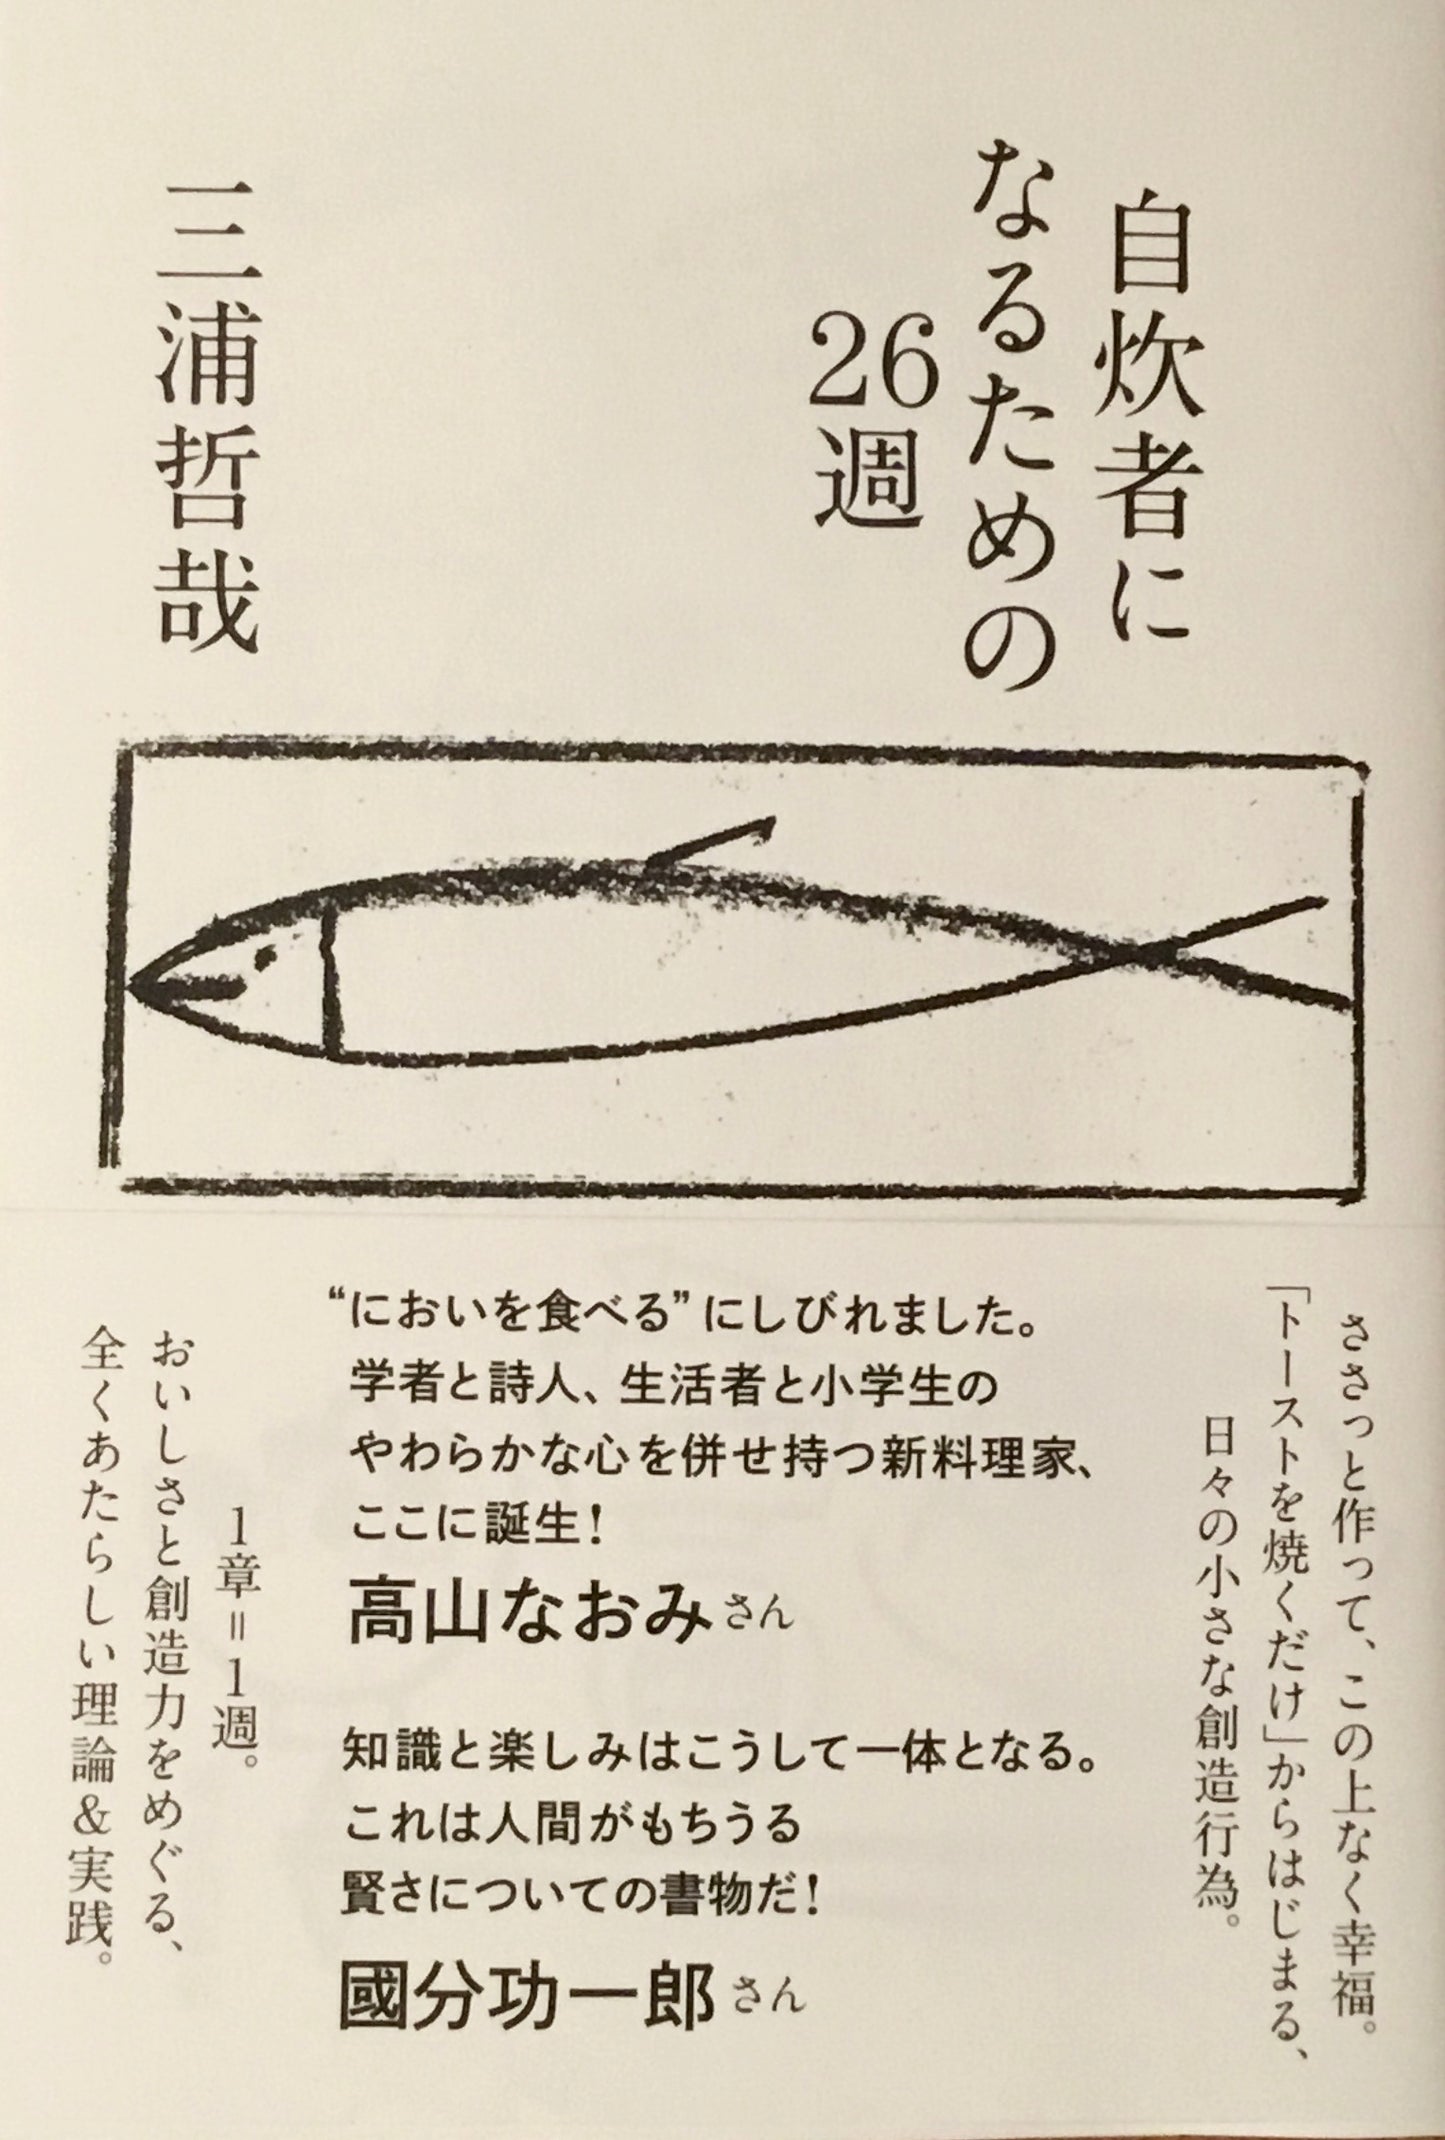 自炊者に
なるための
26週
三浦哲哉
ささっと作って、この上なく幸福。
「トーストを焼くだけ」からはじまる、
日々の小さな創造行為。
“においを食べる”にしびれました。
学者と詩人、生活者と小学生の
やわらかな心を併せ持つ新料理家、
ここに誕生!
高山なおみさん
知識と楽しみはこうして一体となる。
これは人間がもちうる
賢さについての書物だ!
國分功一郎さん
1章=1週。
おいしさと創造力をめぐる、
全くあたらしい理論&実践。